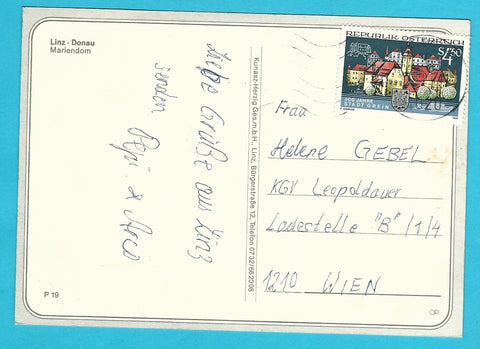 Linz - Donau
Mariendom
Liebe Grüße aus Linz
senden Pepi & Arco
P 19
Kunasz-Herzig Ges.m.b.H., Linz, Bürgerstraße 12, Telefon 0732/662008
REPUBLIK ÖSTERREICH
S 4.50
500 JAHRE
STADT GREIN
Frau
Helene GEBEL
KGV Leopoldauer
Ladestelle "B"/1/4
1210 WIEN
CP